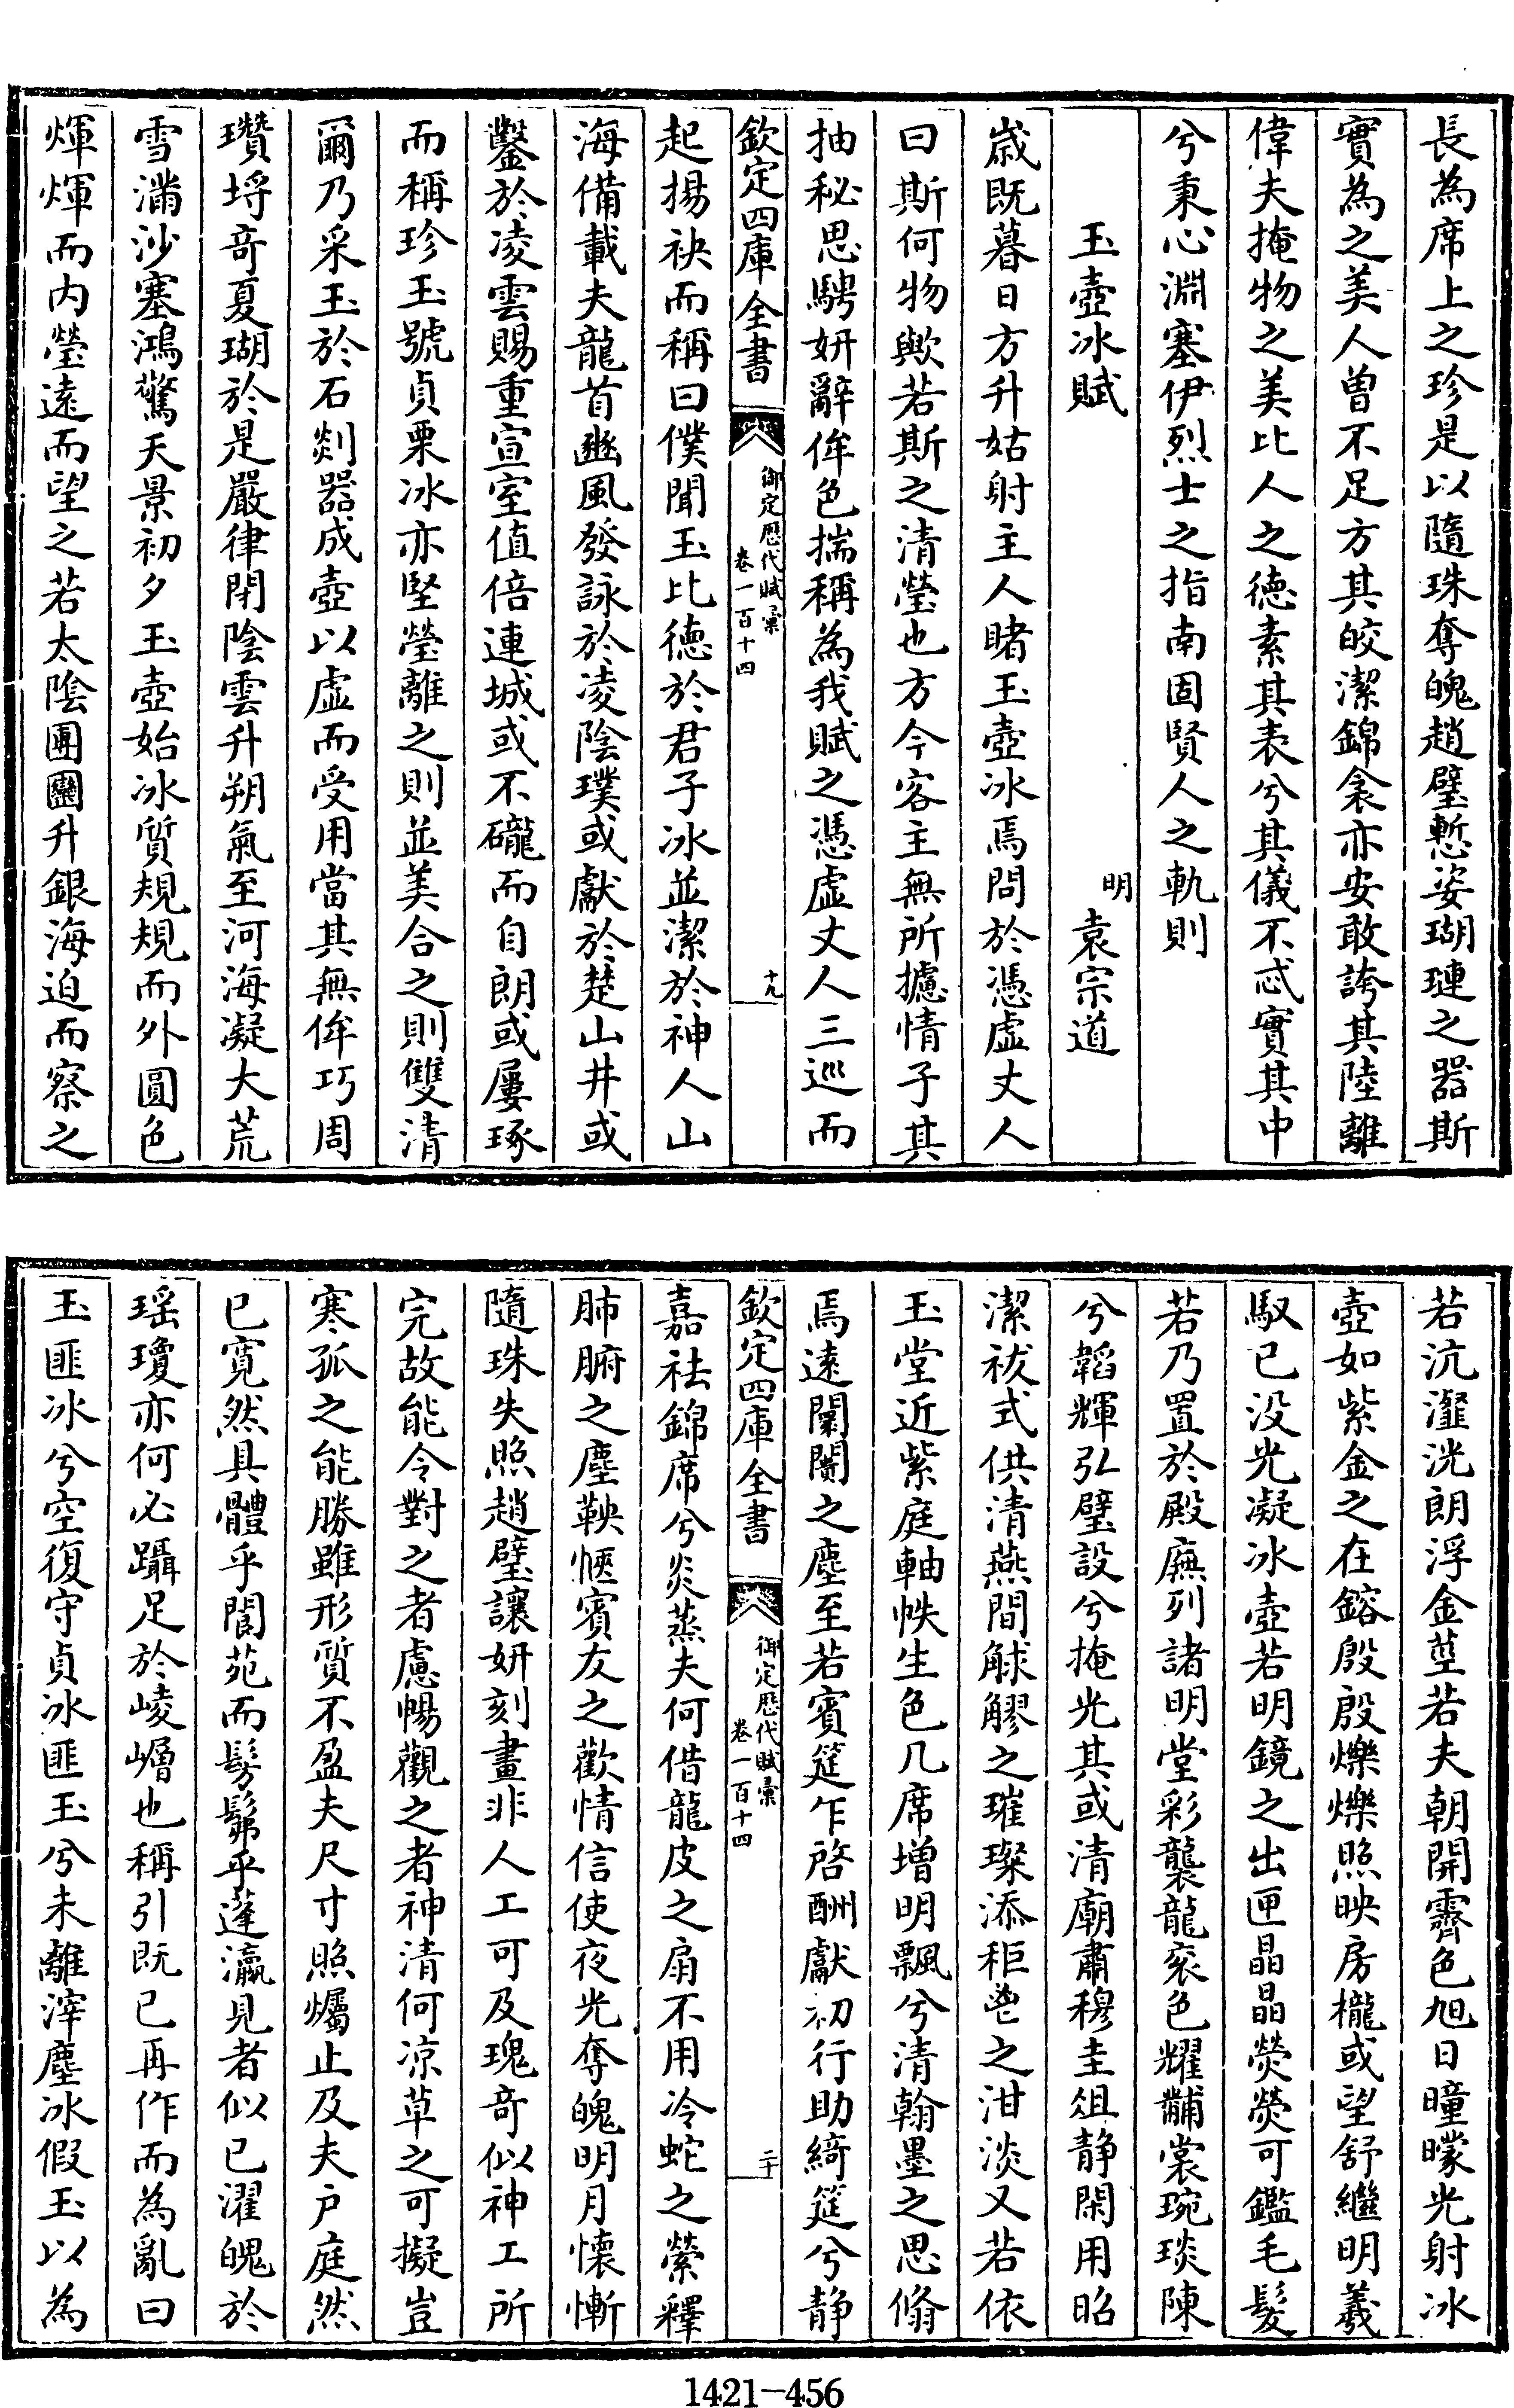 長為席上之珍是以隨珠奪魄趙璧慙姿瑚璉之器斯
實為之美人曽不足方其皎潔錦衾亦安敢誇其陸離
偉夫掩物之美比人之德素其表兮其儀不忒實其中
兮秉心淵塞伊烈士之指南固賢人之軌則
玉壺冰賦
明袁宗道
歲既暮日方升姑射主人睹玉壺冰焉問於憑虛丈人
曰斯何物歟若斯之清瑩也方今客主無所攄情子其
抽秘思騁妍辭侔色揣稱為我賦之憑虛丈人三巡而
欽定四庫全書
御定歷代賦彙
卷一百十四
十九
起揚袂而稱曰僕聞玉比德於君子冰並潔於神人山
海備載夫龍首豳風發詠於凌陰璞或獻於楚山井或
鑿於凌雲賜重宣室值倍連城或不礲而自朗或屢琢
而稱珍玉號貞栗冰亦堅瑩離之則並美合之則雙清
爾乃采玉於石剡器成壺以虛而受用當其無侔巧周
瓚埒奇夏瑚於是嚴律閉陰雲升朔氣至河海凝大荒
雪滿沙塞鴻驚天景初夕玉壺始冰質規規而外圓色
煇煇而内瑩遠而望之若太陰團圞升銀海迫而察之
若沆瀣洸朗浮金莖若夫朝開霽色旭日曈曚光射冰
壺如紫金之在鎔殷殷爍爍照映房櫳或望舒繼明羲
馭已没光凝冰壺若明鏡之出匣晶晶熒熒可鑑毛髮
若乃置於殿廡列諸明堂彩襲龍衮色耀黼裳琬琰陳
兮韜輝弘璧設兮掩光其或清廟肅穆圭俎静閑用昭
潔祓式供清燕間觩觺之璀璨添秬鬯之泔淡又若依
玉堂近紫庭軸帙生色几席增明飄兮清翰墨之思翛
焉遠闤闠之塵至若賓筵乍啓酬獻初行助綺筵兮静
欽定四庫全書
御定歷代賦彙
卷一百十四
二十
嘉祛錦席兮炎蒸夫何借龍皮之扇不用冷蛇之縈釋
肺腑之塵鞅愜賓友之歡情信使夜光奪魄明月懷慚
隨珠失照趙璧讓妍刻畫非人工可及瑰奇似神工所
完故能令對之者慮暢觀之者神清何凉草之可擬豈
寒孤之能勝雖形質不盈夫尺寸照爥止及夫户庭然
已寛然具體乎閬苑而髣髴乎蓬瀛見者似已濯魄於
瑶瓊亦何必躡足於崚嶒也稱引既已再作而為亂曰
玉匪冰兮空復守貞冰匪玉兮未離滓塵冰假玉以為
1421—456